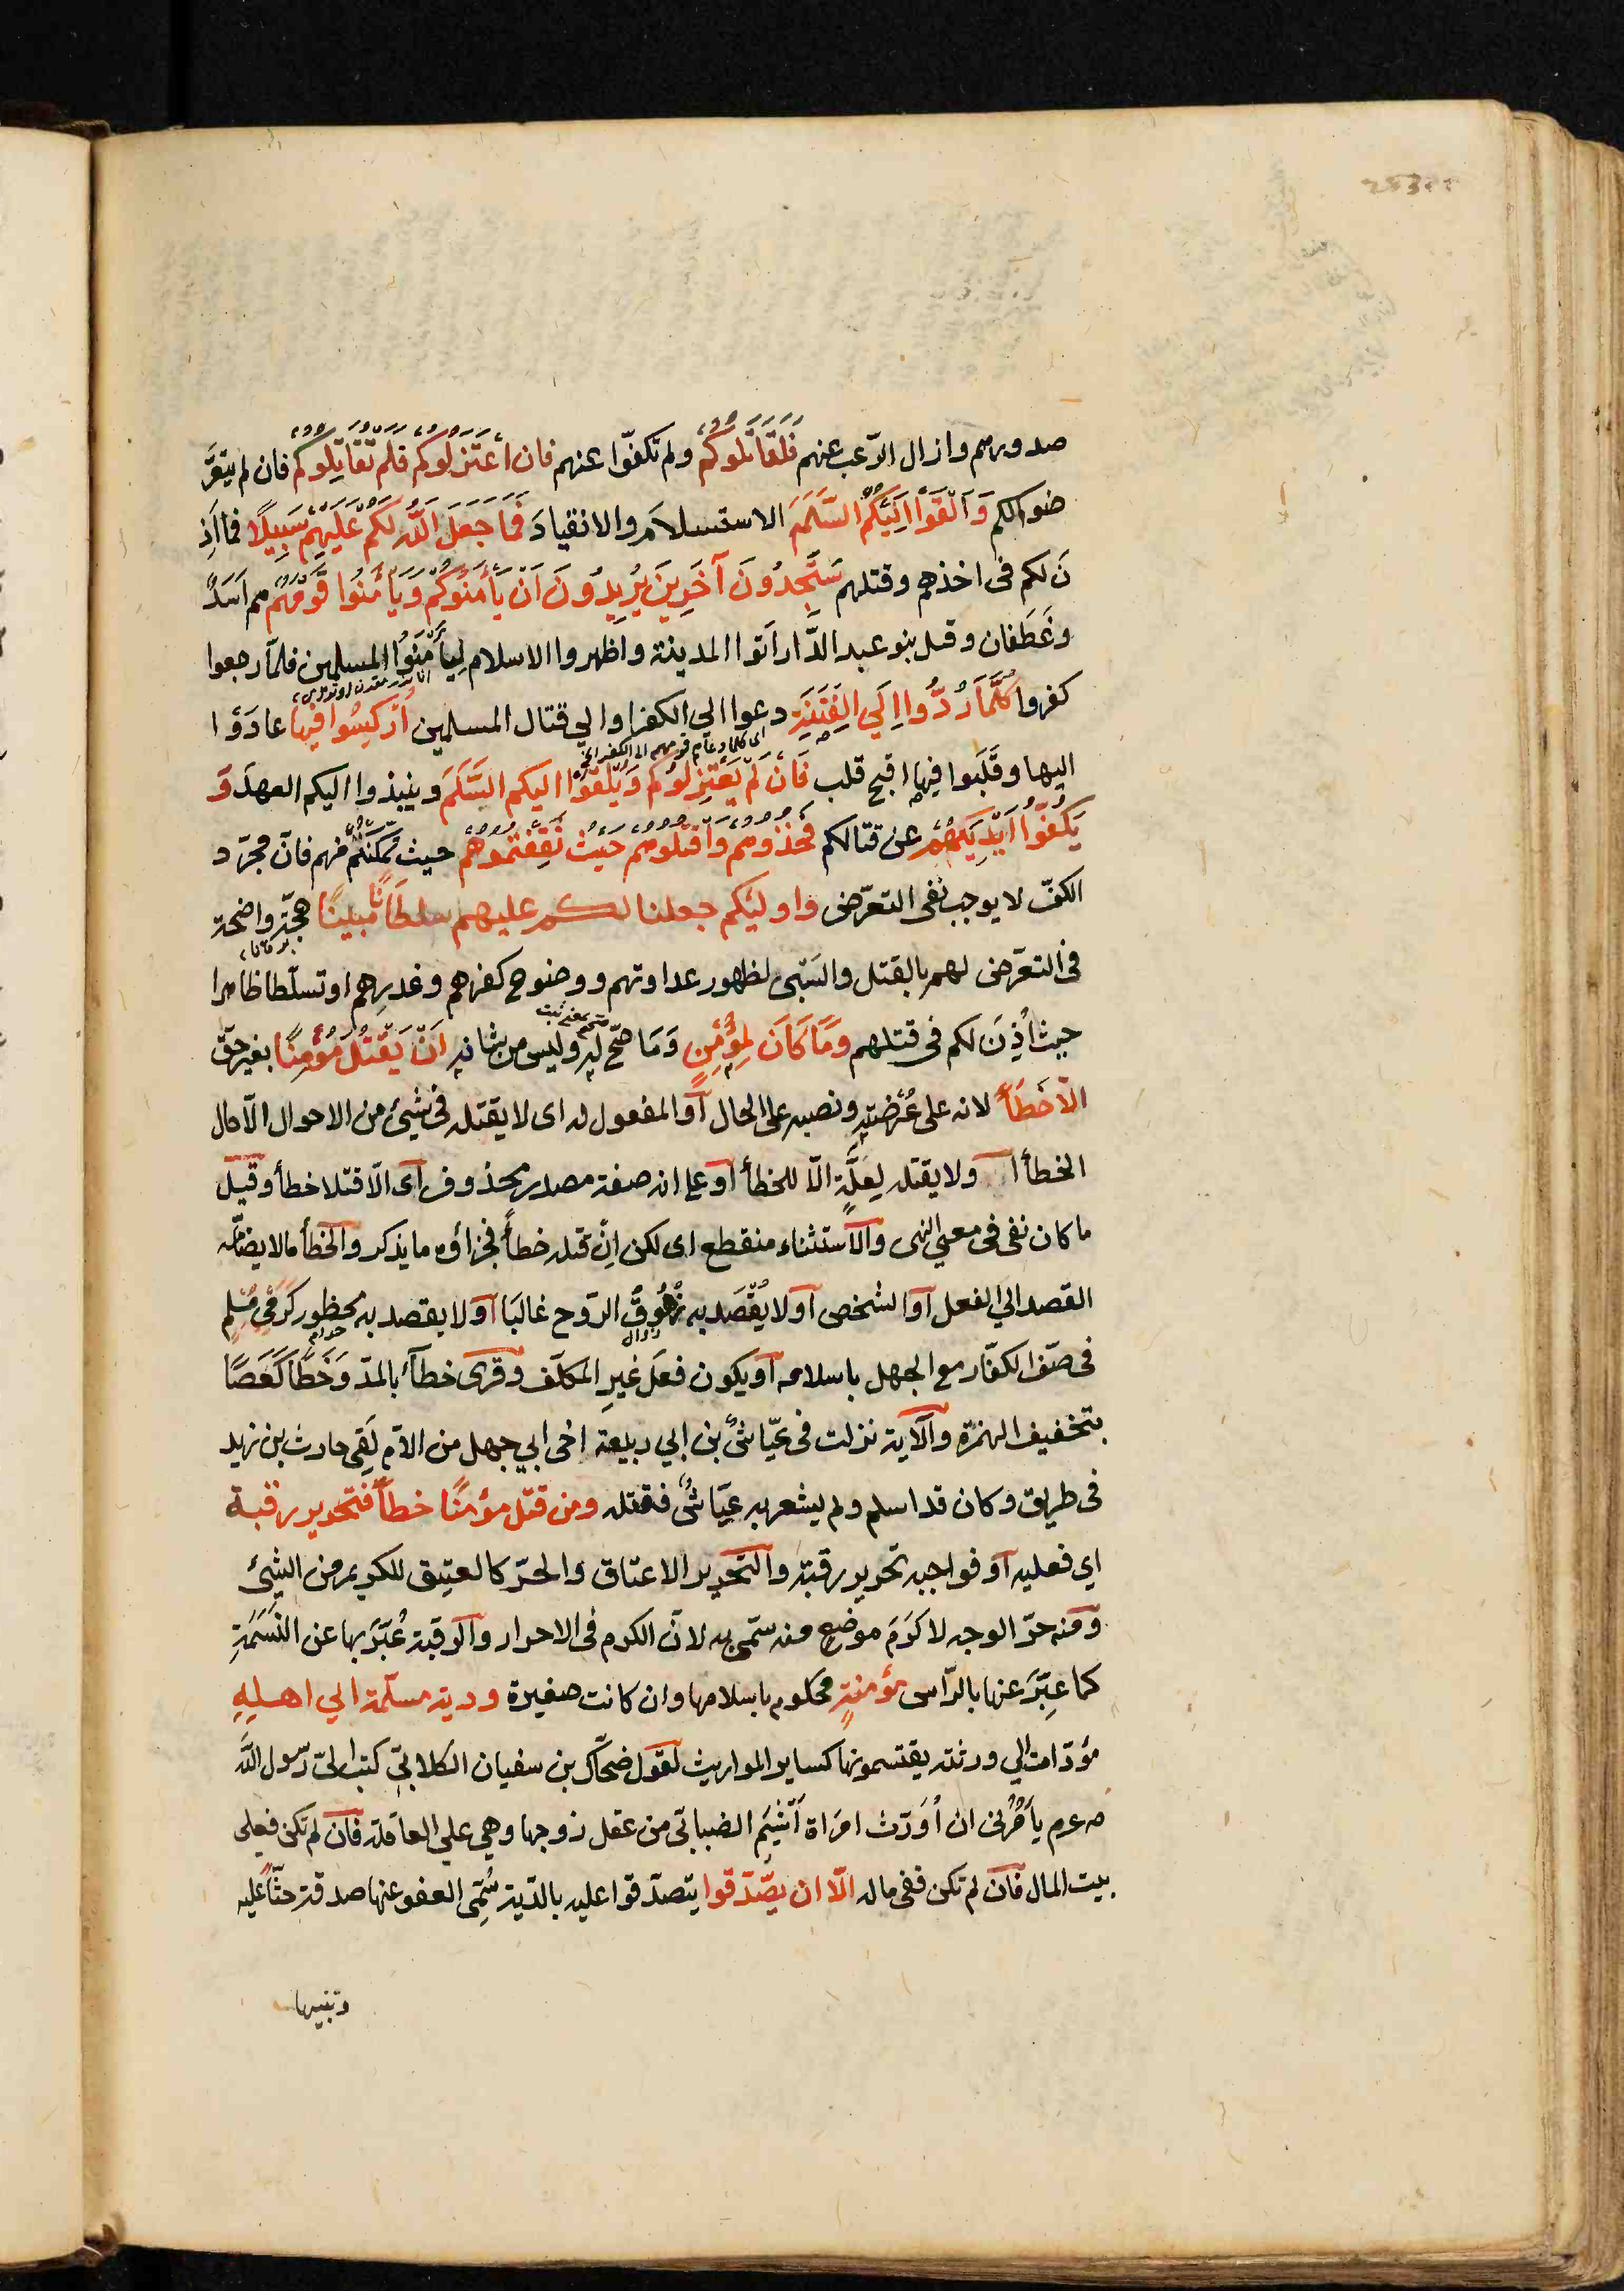 صدورهم وازال الرّعب عنهم فَلَقَاتَلُوكُمْ ولم تكفّوا عنهم فان اعْتَزَلُوكُمْ فَلَمْ يُقَاتِلُوكُمْ فان لم يتعرّ
ضوا لكم وَاَلْقَوْا اِلَيْكُمُ السَّلَمَ الاستسلامَ والانقيادَ فَمَا جَعَلَ اللّٰهُ لَكُمْ عَلَيْهِمْ سَبِيلًا فما اَذِ
نَ لكم فى اخذهم وقتلهم سَتَجِدُونَ آخَرِينَ يُرِيدُونَ اَنْ يَأْمَنُوكُمْ وَيَأْمَنُوا قَوْمَهُمْ هم اَسَدٌ
وغَطَفان وقيل بنو عبد الدَّار اَتوا المدينة واظهروا الاسلام لِيَأْمَنَوُا المسلمين فلمّا رجعوا
كفروا كُلَّمَا رُدُّوا اِلَي الفِتْنَةِ دعوا الي الكفر اوالي قتال المسلمين اُرْكِسُوا فِيهَا عادَوْا
اليها وقُلِبوا فيها اقبح قلب فَاِنْ لَمْ يَعْتَزِلُوكُمْ وَيُلْقُوا اليكم السَّلَمَ وينبذوا اليكم العهدَ وَ
يَكُفُّوا اَيْدِيَهُمْ عن قتالكم فَخُذُوهُمْ وَاقْتُلُوهُمْ حَيْثُ ثَقِفْتُمُوهُمْ حيث تمكنتم منهم فانّ مجرّد
الكفّ لا يوجب نفى التعرّض واولئكم جعلنا لكم عليهم سلطانًا مبينًا حجّة واضحة
فى التعرّض لهم بالقتل والسَّبى لظهور عداوتهم ووضوح كفرهم وغدرهم او تسلّطا ظاهرا
حيث اُذِنَ لكم فى قتلهم وَمَا كَانَ لِمُؤْمِنٍ وَمَا صحّ له وليس من شانه اَنْ يَقْتُلَ مُؤْمِنًا بغير حقّ
الّا خَطَأً لانه على عُرْضَتِهِ ونصبه على الحال اَو المفعول له اى لا يقتله فى شيئ من الاحوال الّا حال
الخطأ ا ولا يقتله لِعِلَّةٍ الّا للخطأ اَو على انه صفة مصدر محذوف اى الّا قتلا خطأ وقيل
ما كان نفى فى معني النهى والاستثناء منقطع اى لكن اِنْ قتله خطأً فجزاؤه ما يذكر والخطأ مالا يضامّه
القصد الي الفعل اَو الشخص اَو لا يُقْصَد به زُهُوقُ الرّوح غالبًا اَو لا يقصد به محظور كرَمْىِ مُسْلِمٍ
فى صفّ الكفّار مع الجهل باسلامه اَو يكون فعلَ غيرِ المكلّف وقرئ خطاءً بالمدّ وَخَطًا كَعَصًا
بتخفيف الهمزة والآية نزلت فى عيّاش بن ابي ربيعة اخى ابي جهل من الامّ لَقِىَ حارث بن زيد
فى طريق وكان قد اسلم ولم يشعر به عيّاشٌ فقتله ومن قتل مؤمنًا خطأً فتحرير رقبة
اي فعليه اَو فواجبه تحرير رقبة والتحرير الاعتاق والحرّ كالعتيق للكريم من الشيئ
ومنه حرّ الوجه لاكرَمِ موضعٍ منه سمّى به لانّ الكرم فى الاحرار والرقبة عُبّرَ بها عن النَسَمَةِ
كما عبّرَ عنها بالرّاس مؤمنةٍ محكوم باسلامها وان كانت صغيرة ودية مسلّمة الي اهلِهِ
مؤدّاة الي ورثته يقتسمونها كساير المواريث لقول ضحّاك بن سفيان الكلابيّ كتب اليّ رسول اللّٰه
صلعم يأمُرُنى ان اُوَرّث امراة اَشْيَم الضبابّى من عقل زوجها وهى علي العاقلة فان لم تكن فعلى
بيت المال فان لم تكن ففى ماله الّا ان يصّدّقوا يتصدّقوا عليه بالدّية سُمّى العفو عنها صدقة حثًّا عليه
وتنبيها